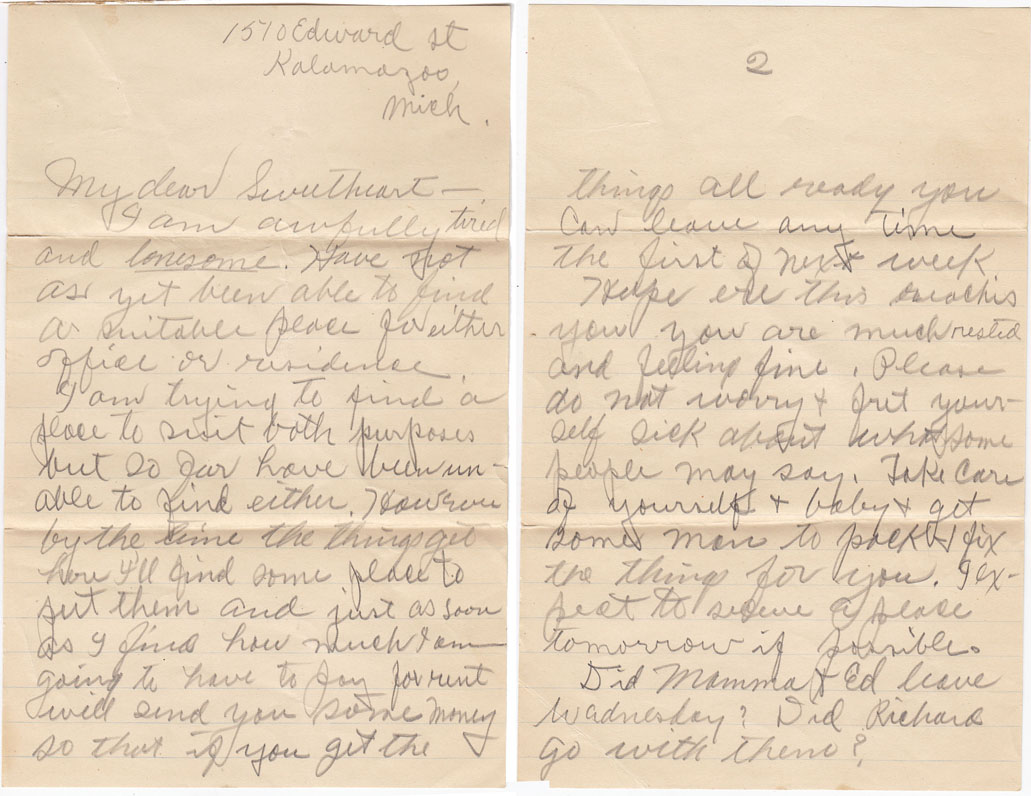 1510 Edward st
Kalamazoo,
Mich.
My dear Sweetheart —
I am awfully tired
and lonesome. Have not
as yet been able to find
a suitable place for either
office or residence.
I am trying to find a
place to suit both purposes
but so far have been un-
able to find either. However
by the time the things get
here I'll find some place to
put them and just as soon
as I find how much I am
going to have to pay for rent
I will send you some money
so that if you get the
2
things all ready you
can leave any time
the first of next week.
Hope ere this reaches
you you are much rested
and feeling fine. Please
do not worry & fret your-
self sick about what some
people may say. Take care
of yourself & baby & get
some man to pack & fix
the things for you. I ex-
pect to secure a place
tomorrow if possible.
Did Mamma & Ed leave
Wednesday? Did Richard
go with them?